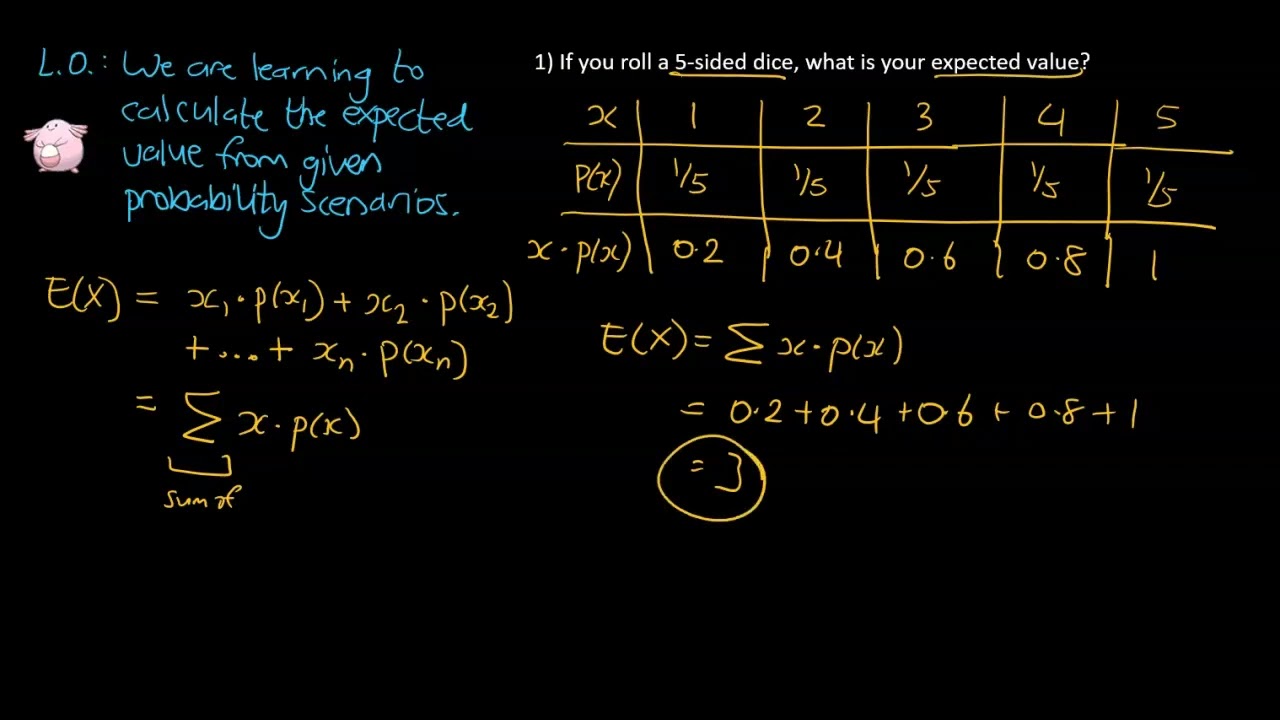 L.O.: We are learning to
calculate the expected
value from given
probability scenarios.
E(X) = x₁·p(x₁) + x₂·p(x₂)
+...+ xₙ·p(xₙ)
= ∑ x·p(x)
sum of
1) If you roll a 5-sided dice, what is your expected value?
x 1 2 3 4 5
P(x) 1/5 1/5 1/5 1/5 1/5
x·p(x) 0.2 0.4 0.6 0.8 1
E(X) = ∑ x·p(x)
= 0.2 + 0.4 + 0.6 + 0.8 + 1
= 3